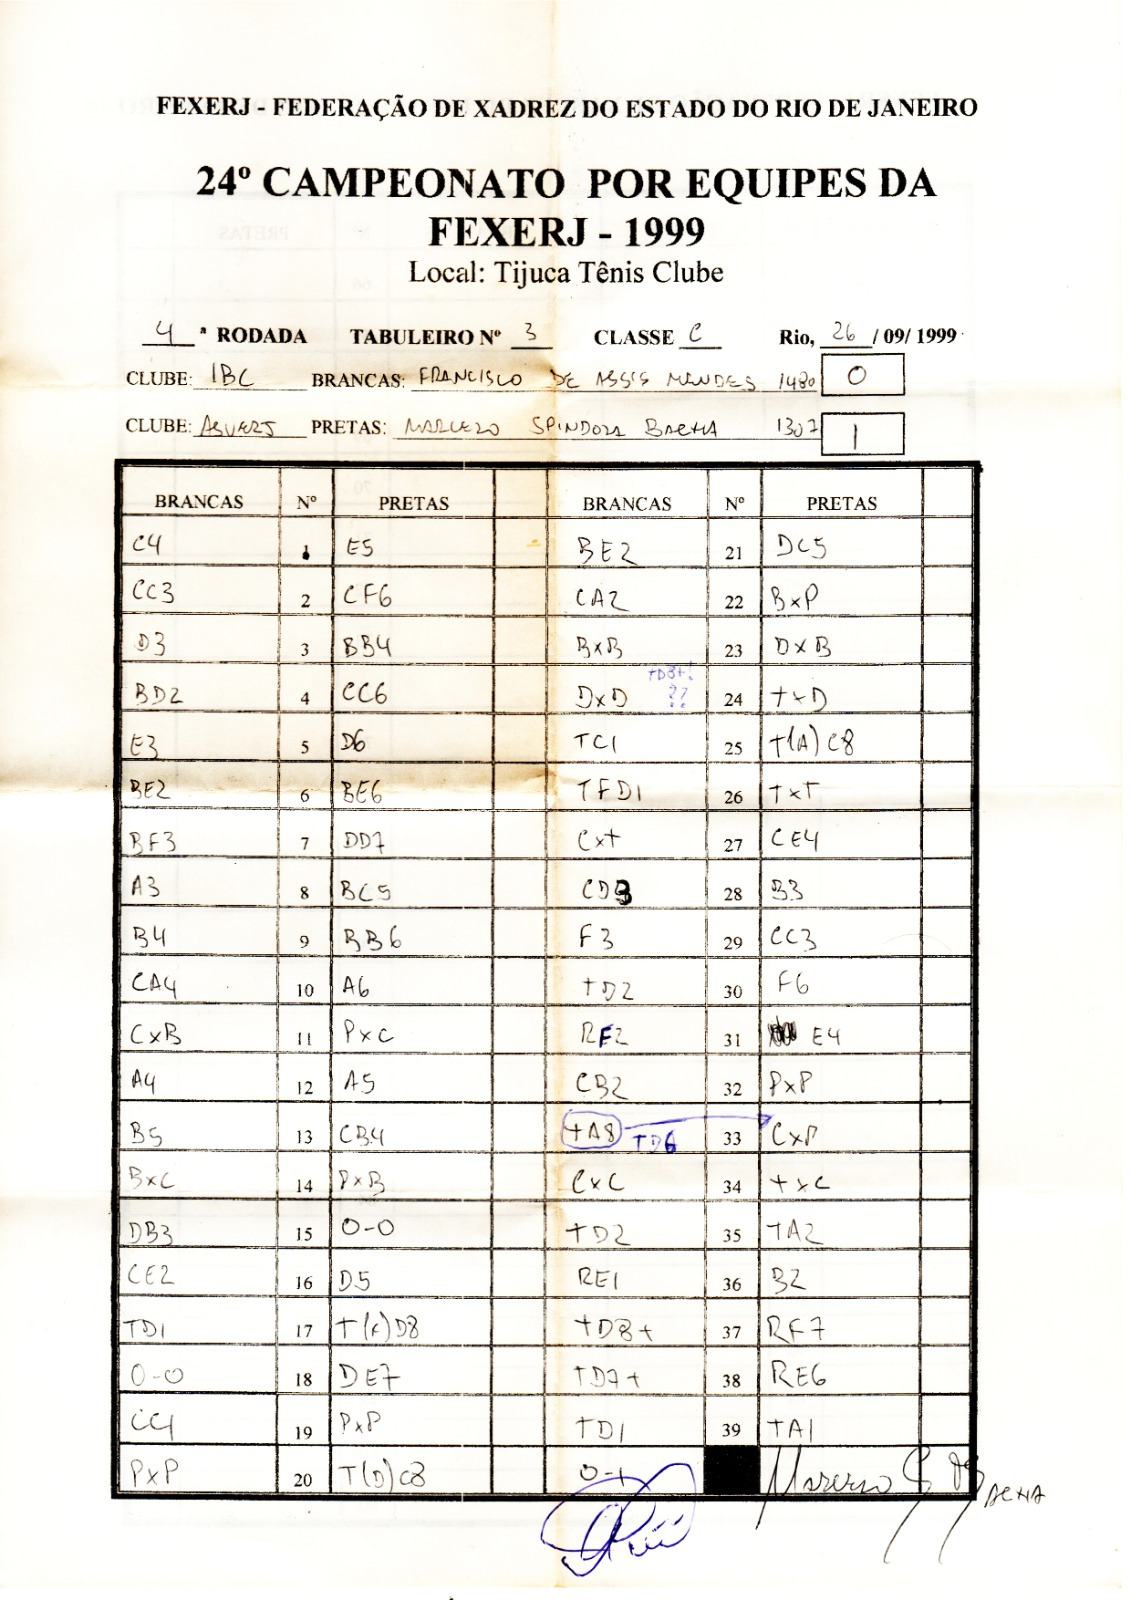 FEXERJ - FEDERAÇÃO DE XADREZ DO ESTADO DO RIO DE JANEIRO
24º CAMPEONATO POR EQUIPES DA
FEXERJ - 1999
Local: Tijuca Tênis Clube
4 ª RODADA TABULEIRO Nº 3 CLASSE C Rio, 26 / 09/ 1999
CLUBE: IBC BRANCAS: FRANCISCO DE ASSIS MENDES 1480 0
CLUBE: ASVERJ PRETAS: MARCELO SPINDOLA BACHA 1307 1
BRANCAS Nº PRETAS BRANCAS Nº PRETAS
C4 1 E5 BE2 21 DC5
CC3 2 CF6 CA2 22 BxP
D3 3 BB4 BxB 23 DxB
TD8+!
BD2 4 CC6 DxD ?? 24 TxD
E3 5 D6 TC1 25 T(A)C8
BE2 6 BE6 TFD1 26 TxT
BF3 7 DD7 CxT 27 CE4
A3 8 BC5 CD3 28 B3
B4 9 BB6 F3 29 CC3
CA4 10 A6 TD2 30 F6
CxB 11 PxC RF2 31 E4
A4 12 A5 CB2 32 PxP
B5 13 CB4 TA8 TD6 33 CxP
BxC 14 PxB CxC 34 TxC
DB3 15 O-O TD2 35 TA2
CE2 16 D5 RE1 36 B2
TD1 17 T(F)D8 TD8+ 37 RF7
O-O 18 DE7 TD7+ 38 RE6
CC1 19 PxP TD1 39 TA1
PxP 20 T(D)C8 0-1
BACHA